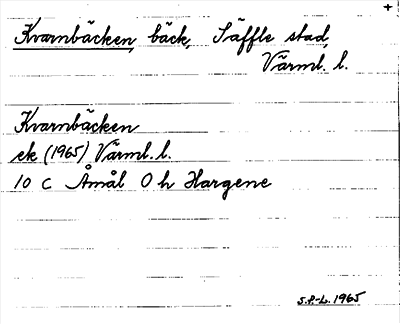 +
Kvarnbäcken, bäck, Säffle stad,
Värml. l.
Kvarnbäcken
ek (1965) Värml. l.
10 C Åmål O h Hargene
S.P-L. 1965